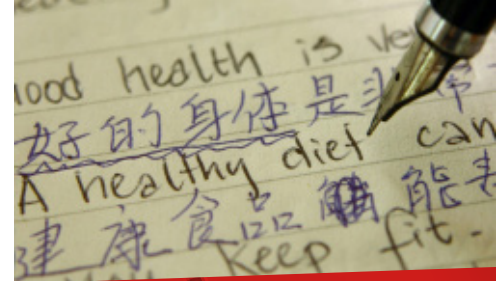 health is
好的身体是非常
A healthy diet can
健康食品 能
keep fit.